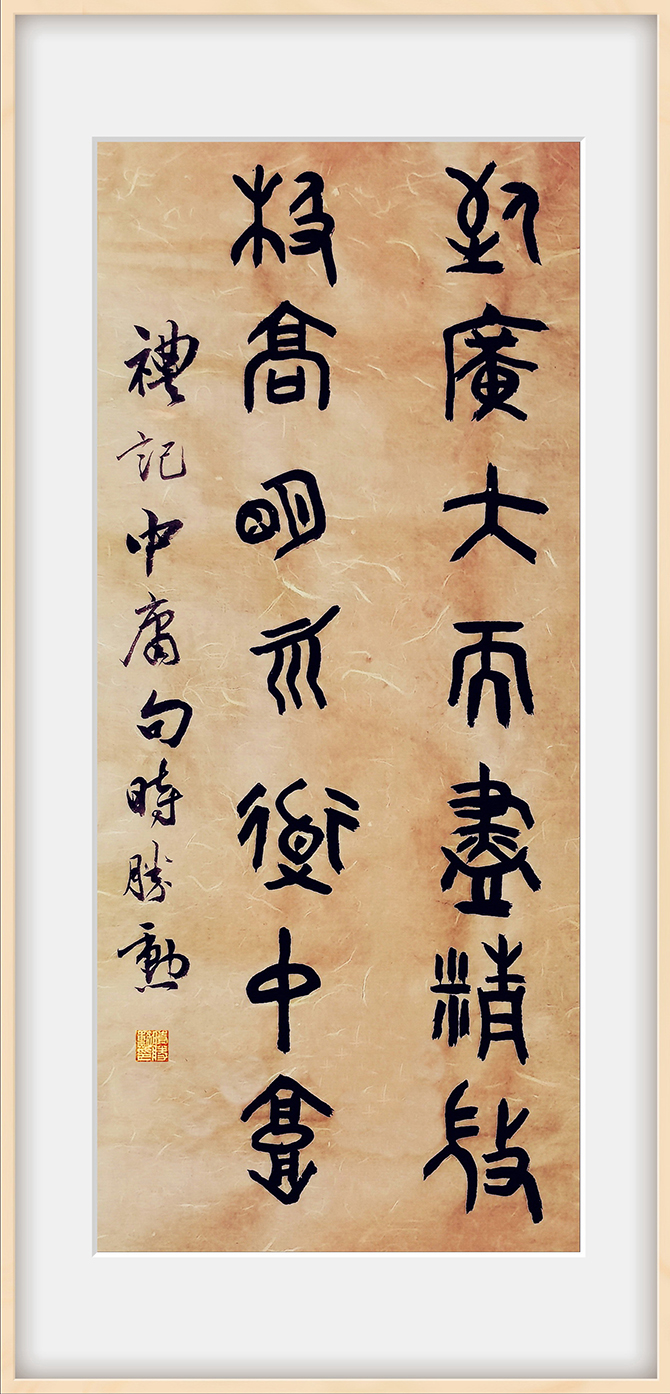 致廣大而盡精微
極高明而道中庸
禮記中庸句時勝勳